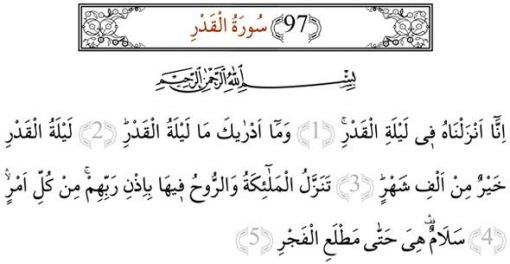 سُورَةُ الْقَدْرِ ﴿97﴾
بِسْمِ اللّٰهِ الرَّحْمٰنِ الرَّحِيمِ
اِنَّٓا اَنْزَلْنَاهُ فٖي لَيْلَةِ الْقَدْرِۚ ﴿1﴾ وَمَٓا اَدْرٰيكَ مَا لَيْلَةُ الْقَدْرِؕ ﴿2﴾ لَيْلَةُ الْقَدْرِ
خَيْرٌ مِنْ اَلْفِ شَهْرٍؕ ﴿3﴾ تَنَزَّلُ الْمَلٰٓئِكَةُ وَالرُّوحُ فٖيهَا بِاِذْنِ رَبِّهِمْۚ مِنْ كُلِّ اَمْرٍۙ
﴿4﴾ سَلَامٌࣞ هِيَ حَتّٰى مَطْلَعِ الْفَجْرِ ﴿5﴾